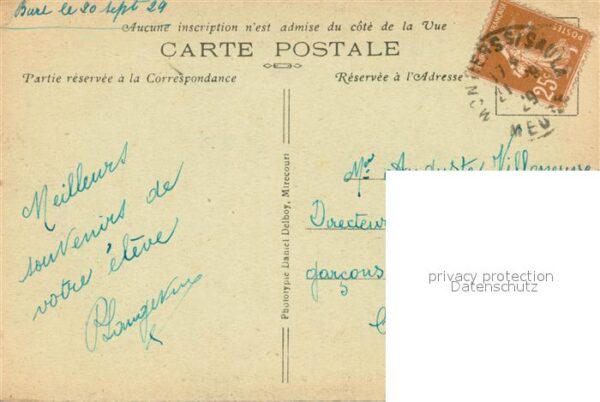 Bure le 20 sept 29
Aucune inscription n'est admise du côté de la Vue
CARTE POSTALE
Partie réservée à la Correspondance
Réservée à l'Adresse
25c
POSTES
MEU
Meilleurs
souvenirs de
votre élève
Phototypie Daniel Delboy, Mirecourt
Mr Auguste
Directeur
garçons
privacy protection
Datenschutz